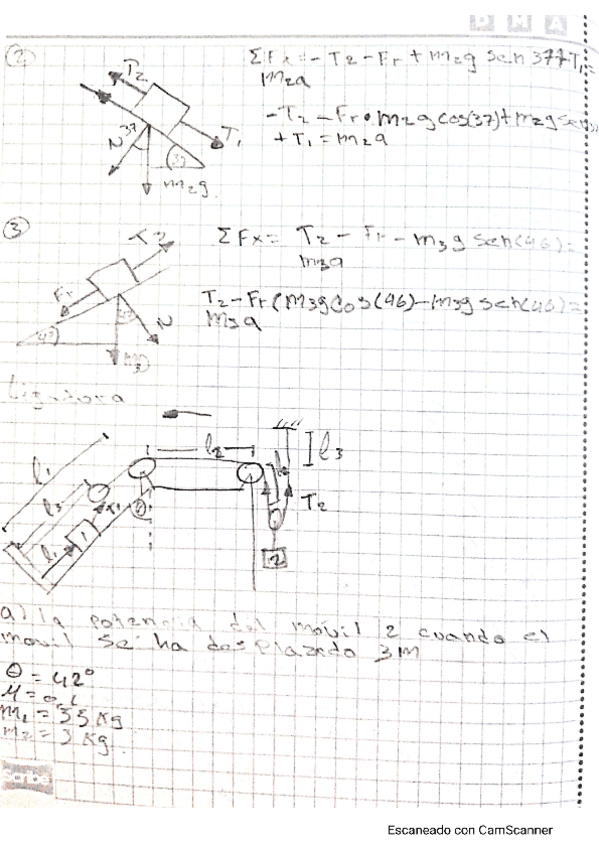 D M A
2
ΣFx = - T2 - Fr + m2g sen 37 + T1 =
m2a
T2
- T2 - Fr • m2g cos(37) + m2g sen 37
+ T1 = m2a
N 37
37
T1
m2g
3
ΣFx = T2 - Fr - m3g sen(46) =
m3a
T2 - Fr (m3g cos(46) - m3g sen(46) =
m3a
Fr
N
m3
Ligadura
l1
l2
l3
T2
1
2
a) la potencia del móvil 2 cuando el
movil se ha desplazado 3m
θ = 42°
m1 = 35 kg
m2 = 3 kg
Scribe
Escaneado con CamScanner